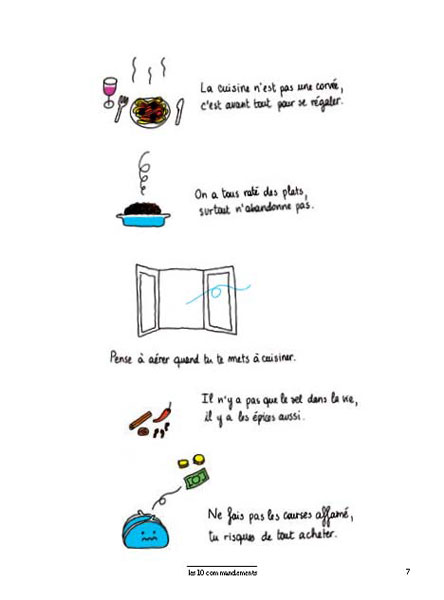 La cuisine n'est pas une corvée,
c'est avant tout pour se régaler.
On a tous raté des plats,
surtout n'abandonne pas.
Pense à aérer quand tu te mets à cuisiner.
Il n'y a pas que le sel dans la vie,
il y a les épices aussi.
Ne fais pas les courses affamé,
tu risques de tout acheter.
les 10 commandements
7